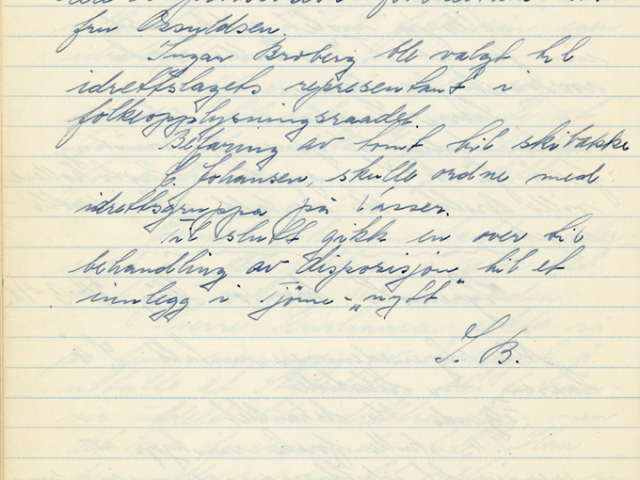 fru Osvuldsen.
Ingar Broberg ble valgt til
idrettslagets representant i
folkeopplysningsraadet
Befaring av tomt til skibakke
E. Johansen, skulle ordne med
idrettsgruppa på
Til slutt gikk en over til
behandling av disposisjon til et
innlegg i Tjöme-„nytt"
I. B.